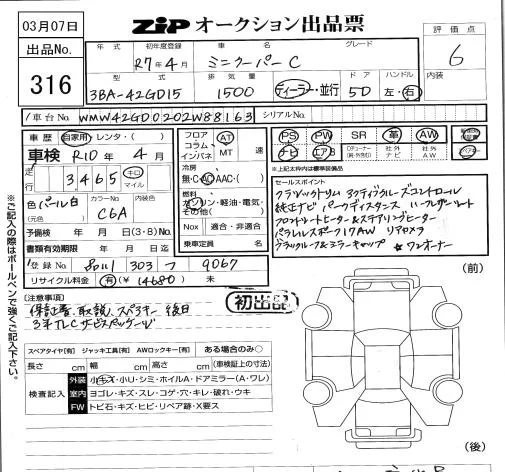 03月07日
ZIP オークション出品票
評価点
6
内装
出品No.
316
年式 初年度登録 車名 グレード
R7年4月 ミニクーパーC
型式 排気量 ドア ハンドル
3BA-42GD15 1500 ディーラー・並行 5D 左・右
車台No. WMW42GD0202W88163 シリアルNo.
車歴 自家用・レンタ・( )
車検 R10年4月
走行 3,465 キロ マイル
色 パール白 (元色) カラーNo. C6A 内装色
予備検 年 月 日(3・8)
書類有効期限 年 月 日迄
登録No. 品川 303 つ 9067
リサイクル料金 有(¥14680) 未
フロア コラム インパネ AT MT 速
冷房 無・C・AC・AAC・( )
燃料 ガソリン・軽油・電気・その他( )
Nox 適合・非適合
乗車定員 名
PS PW SR 革 AW
ナビ エアB 社外ナビ 社外AW
※上記太枠内は標準装備品
セールスポイント
クラシックトリム アクティブクルーズコントロール
純正ナビ パークディスタンス ハーフレザーシート
フロントシートヒーター&ステアリングヒーター
パラレルスポーク17AW リアカメラ
ブラックルーフ&ミラーキャップ ☆ワンオーナー
初出品
(注意事項)
保証書、取説、スペアキー 後日
3年TLCサービスパッケージ
スペアタイヤ【有】 ジャッキ工具【有】 AWロックキー【有】 ある場合のみ○
長さ cm 幅 cm 高さ cm (車検証上の寸法)
検査記入
外装 小キズ・小リ・シミ・ホイルA・ドアミラー(A・ワレ)
室内 ヨゴレ・キズ・スレ・コゲ・穴・キレ・破れ・ウキ
FW トビ石・キズ・ヒビ・リペア跡・X要ス
(前)
(後)
※ご記入の際はボールペンで強くご記入下さい。